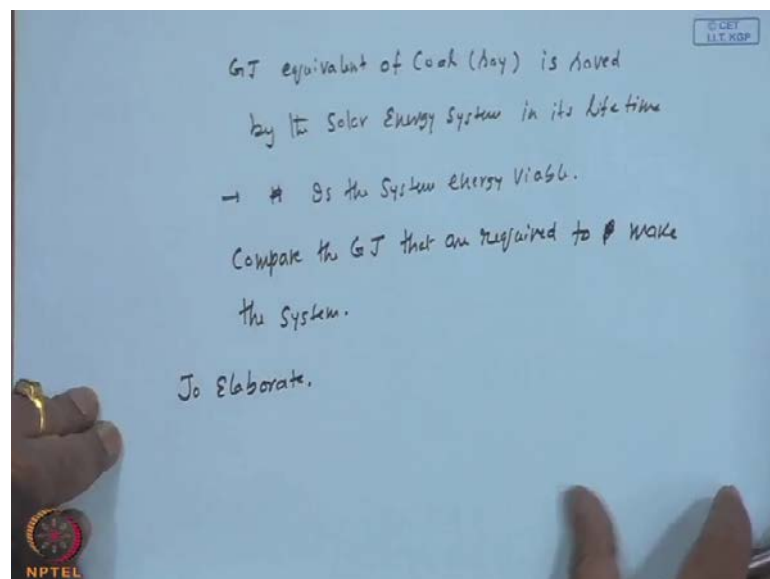 © CET
I.I.T. KGP
GJ equivalent of Coal (say) is saved
by the Solar Energy System in its life time
→ * Is the System Energy Viable.
Compare the GJ that are required to make
the System.
To Elaborate.
NPTEL